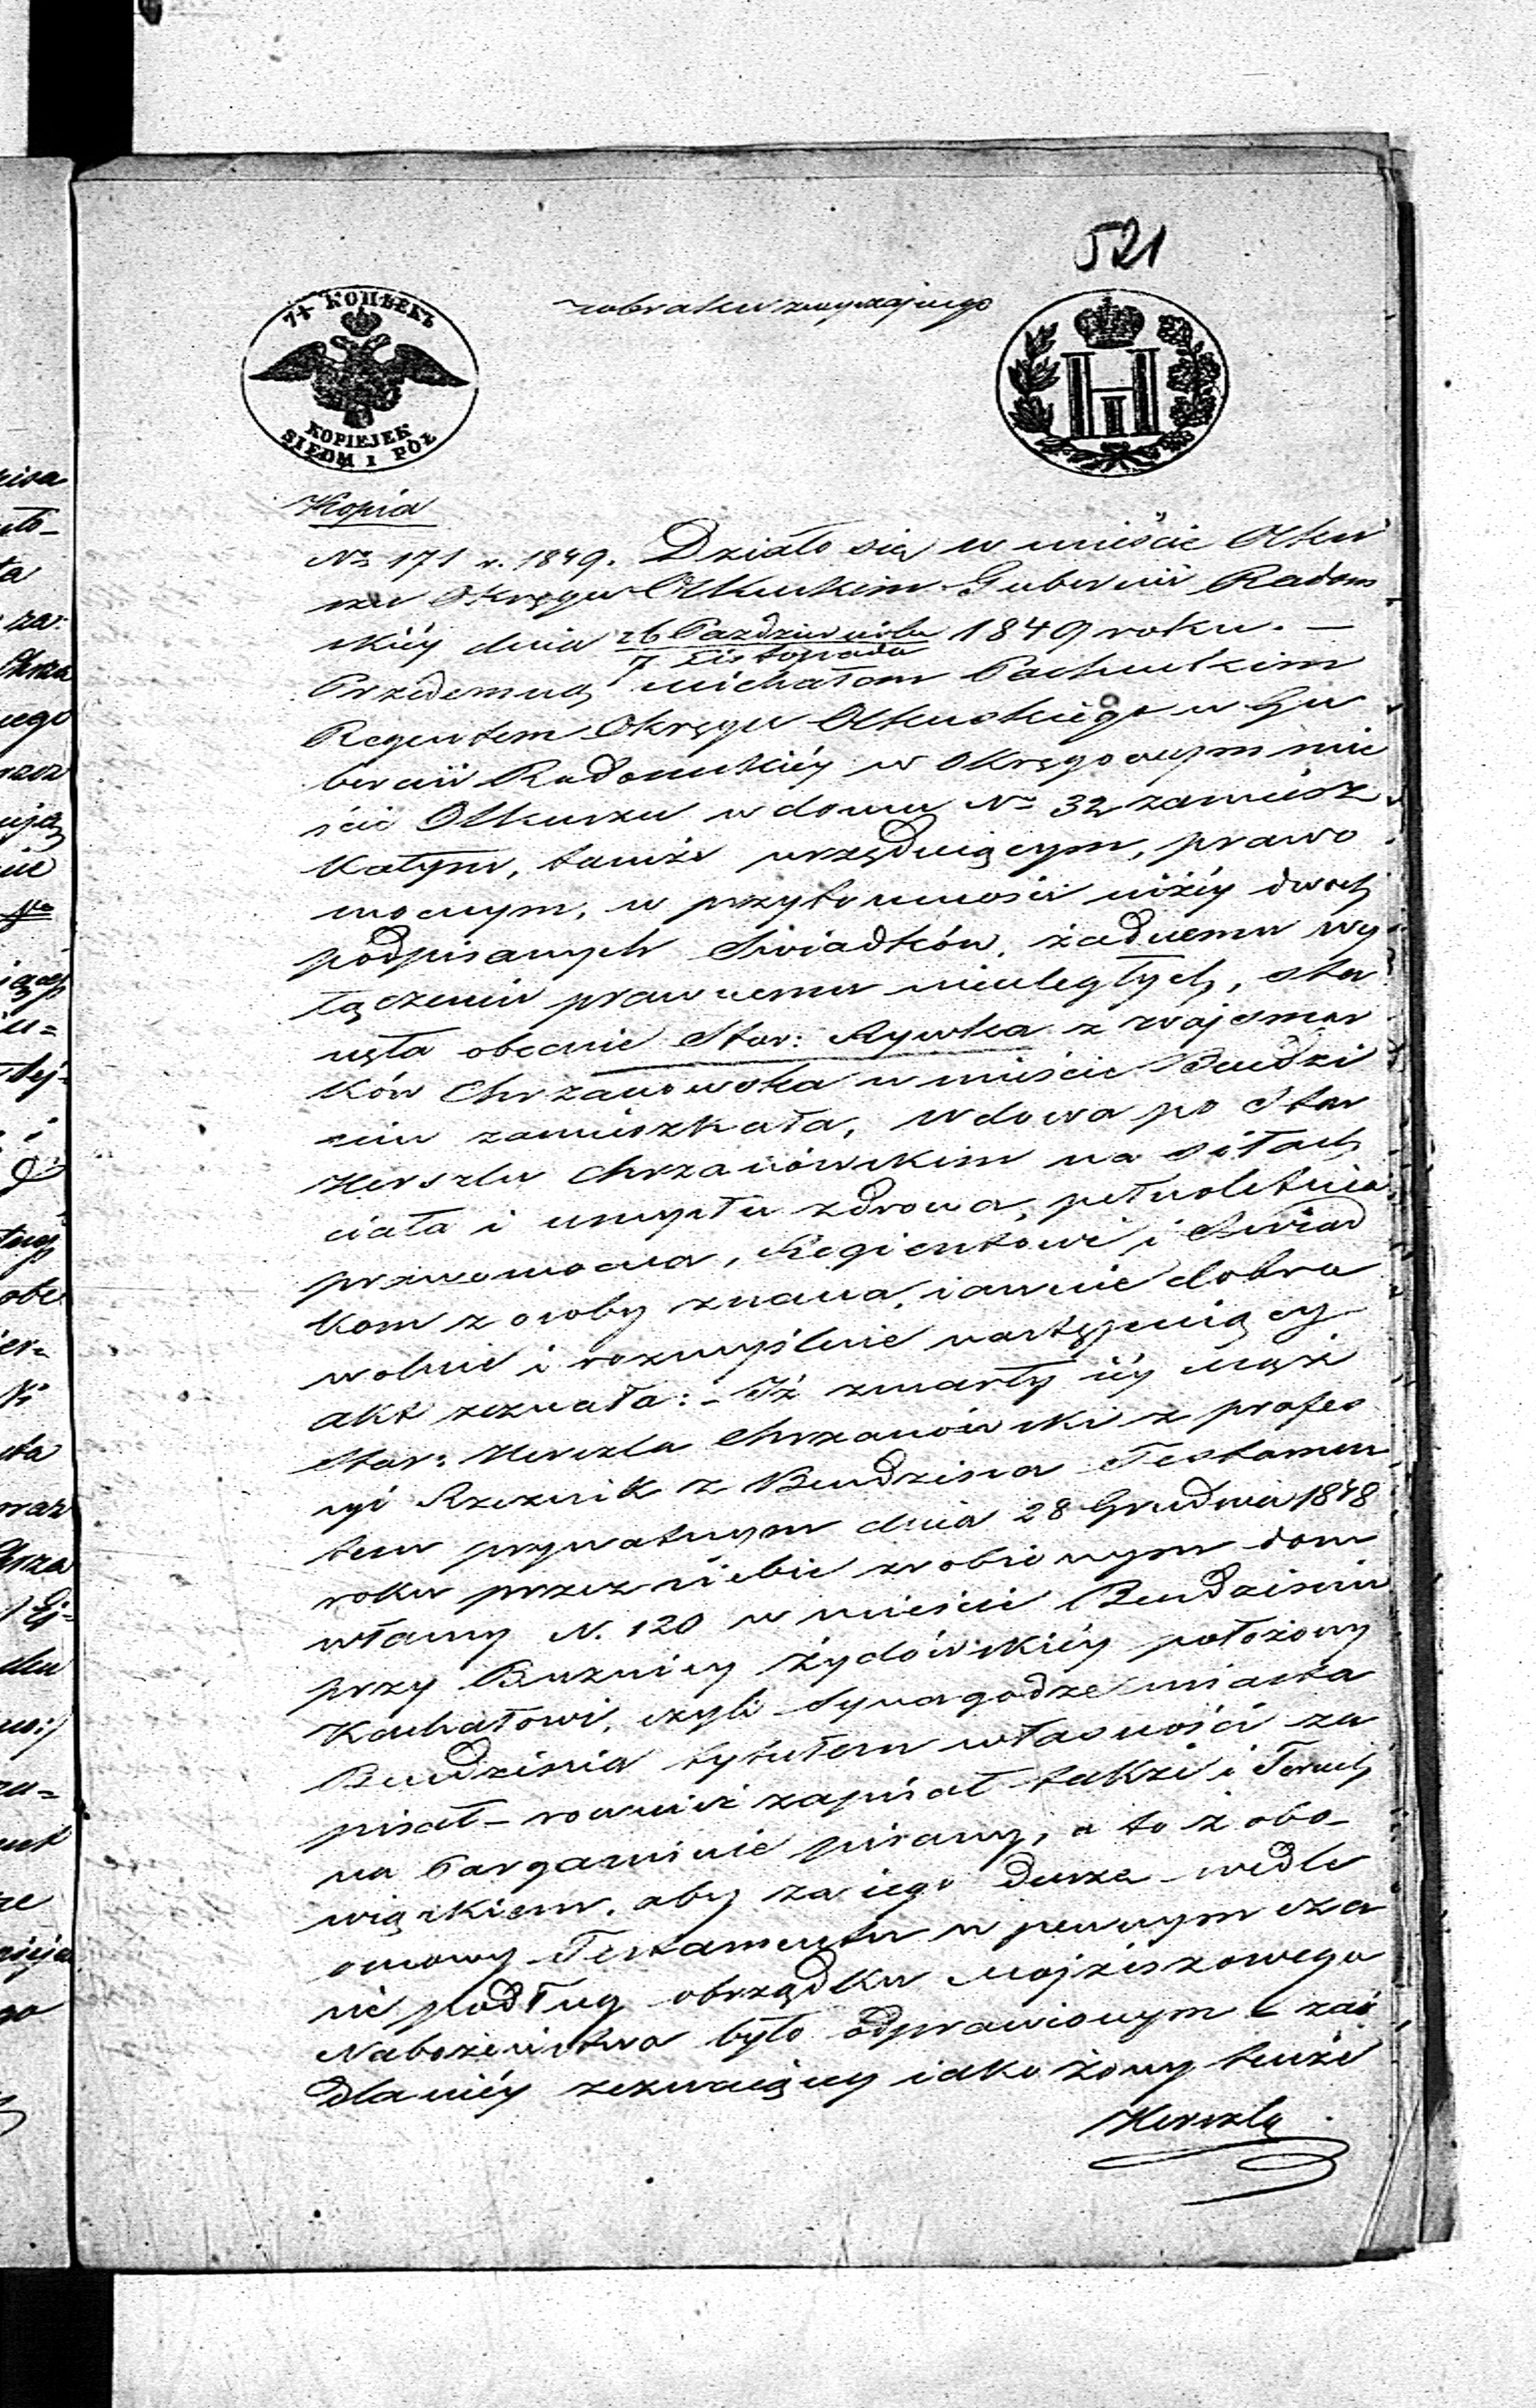 521
7½ КОПѢЕКЪ
KOPIEJEK
SIEDM I PÓŁ
w braku zwyczajnego
Kopia
No 171 r. 1849. Działo się w mieście Olku
szu Okręgu Olkuskim Gubernii Radom
skiéy dnia 26 Października / 7 Listopada 1849 roku. —
Przedemną Michałem Pachulskim
Regentem Okręgu Olkuskiego w Gu
bernii Radomskiéy w Okręgowym mie
ście Olkuszu w domu No 32 zamiesz
kałym, tamże urzęduiącym, prawo
mocnym, w przytomności niżéy dwóch
podpisanych Świadków, żadnemu wy
łączeniu prawnemu nieuległych, sta
nęła obecnie Star: Rywka z Zrajemar
ków Chrzanowska w mieście Bendzi
nie zamieszkała, wdowa po Star
Herszlu Chrzanówskim na siłach
ciała i umysłu zdrowa, pełnoletnia
prawomocna, Regientowi i Świad
kom z osoby znana, iawnie dobro
wolnie i rozmyślnie następuiący
akt zeznała: – Iż zmarły iéy mąż
Star: Herszla Chrzanówski z profes
yi Rzeznik z Bendzina Testamen
tem prywatnym dnia 28 Grudnia 1848
roku przez siebie zrobionym dom
własny N. 120 w mieście Bendzinie
przy Buznicy Żydówskiéy położony
Kachałowi, czyli Synagodze miasta
Bendzina tytułem własności za
pisał – rownie zapisał także i Torach
na Pargaminie pisany, a to z obo–
wiązkiem, aby za iego duszę wedle
osnowy Testamentu w pewnym cza
sie podług obrządku Mojżeszowego
Nabożeństwo było odprawionym zaś
dla niéy zeznaiącey iako żony tenże
Herszla